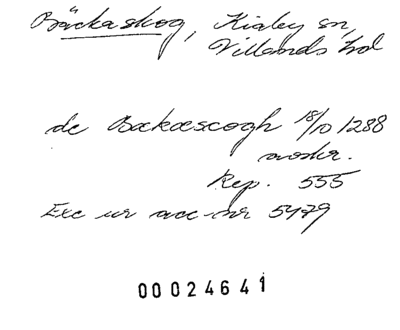 Bäckaskog, Kiaby sn,
Villands hd
de Bækæscogh 18/10 1288
avskr.
Rep. 555
Exc ur acc-nr 5479
00024641